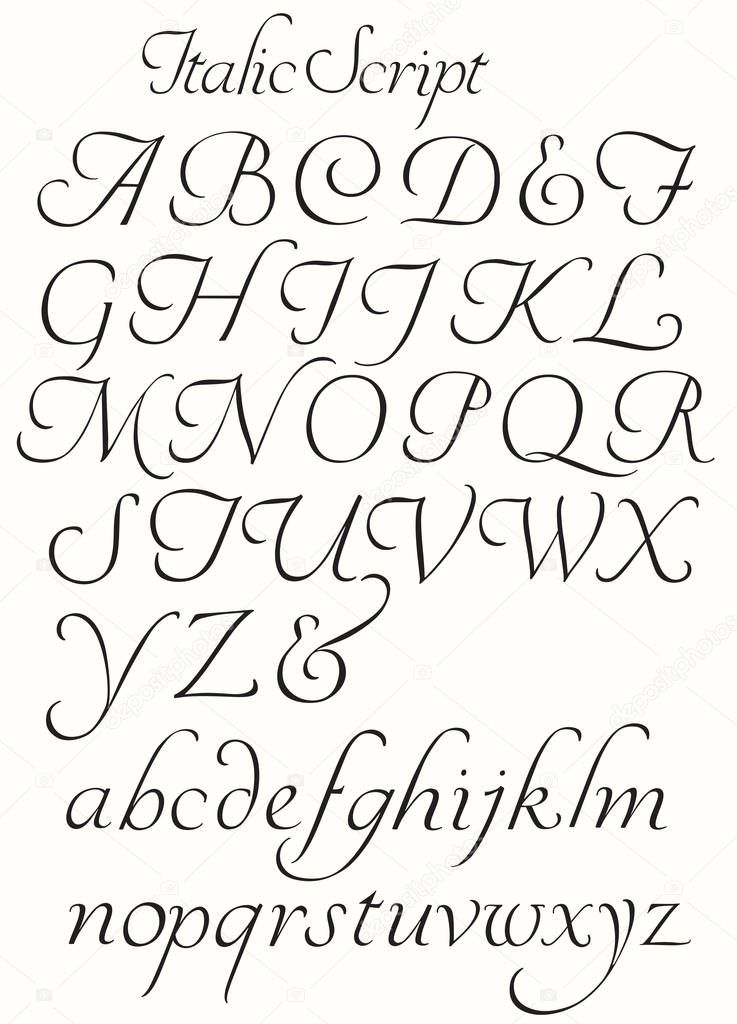 Italic Script
A B C D E F
G H I J K L
M N O P Q R
S T U V W X
Y Z &
a b c d e f g h i j k l m
n o p q r s t u v w x y z